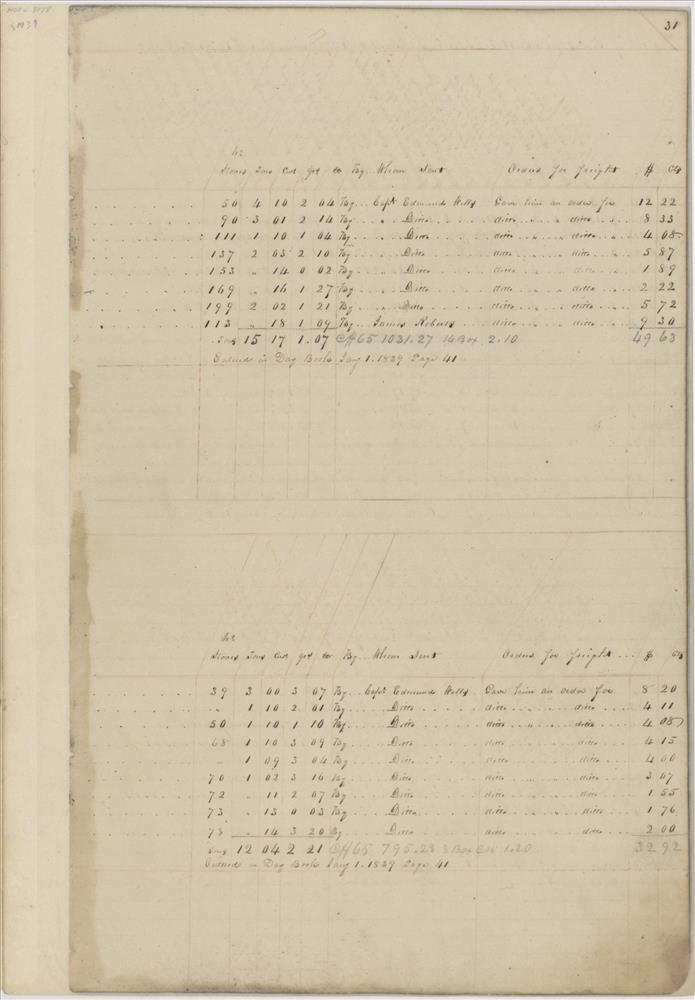 31
No
Stones Tons Cwt qrs lbs By Whom Sent Orders for freight $ Cts
50 4 10 2 04 By Capt Edmund Wells Gave him an order for 12 22
90 3 01 2 14 By " Ditto ditto " ditto 8 33
111 1 10 1 04 By " Ditto ditto " ditto 4 08
137 2 03 2 10 By " Ditto ditto " ditto 5 87
153 " 14 0 02 By " Ditto ditto " ditto 1 89
169 " 16 1 27 By " Ditto ditto " ditto 2 22
199 2 02 1 21 By " Ditto ditto " ditto 5 72
113 " 18 1 09 By James Roberts ditto " ditto 9 30
Tons 15 17 1.07 @ $65 1031.27 16 Box 2.10 49 63
Entered in Day Book Jany 1. 1839 Page 41
No
Stones Tons Cwt qrs lbs By Whom Sent Orders for freight $ Cts
39 3 00 3 07 By Capt Edmund Wells Gave him an order for 8 20
" 1 10 2 01 By Ditto ditto " ditto 4 11
50 1 10 1 10 By Ditto ditto " ditto 4 08
68 1 10 3 09 By Ditto ditto ditto 4 15
" 1 09 3 04 By Ditto ditto ditto 4 00
70 1 02 3 16 By Ditto ditto " ditto 3 07
72 " 11 2 07 By Ditto ditto " ditto 1 55
73 " 13 0 03 By Ditto ditto " ditto 1 76
78 " 14 3 20 By Ditto ditto ditto 2 00
Tons 12 04 2 21 @ $65 795.23 8 Box 1.20 32 92
Entered in Day Book Jany 1. 1839 Page 41